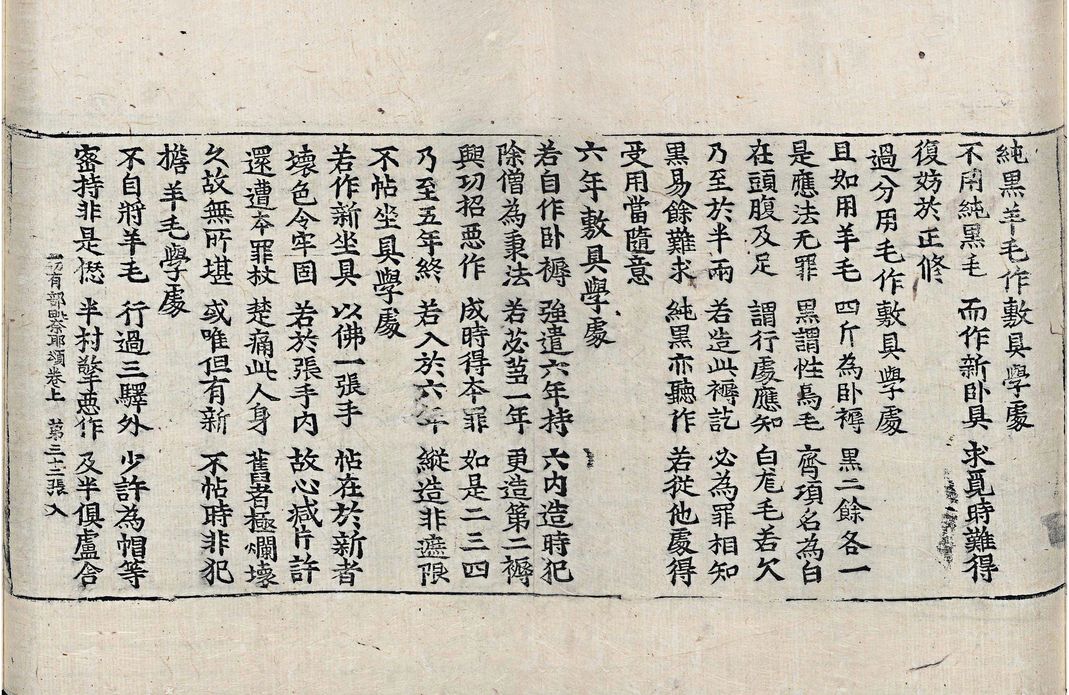 純黑羊毛作敷具學處
不用純黑毛 而作新卧具 求覓時難得
復妨於正修
過分用毛作敷具學處
且如用羊毛 四斤為卧褥 黑二餘各一
是應法无罪 黑謂性烏毛 齊項名為白
在頭腹及足 謂行處應知 白尨毛若欠
乃至於半兩 若造此褥訖 必為罪相知
黑易餘難求 純黑亦聽作 若從他處得
受用當隨意
六年敷具學處
若自作卧褥 強遣六年持 六內造時犯
除僧為秉法 若苾芻一年 更造第二褥
興功招惡作 成時得本罪 如是二三四
乃至五年終 若入於六年 縱造非遮限
不帖坐具學處
若作新坐具 以佛一張手 帖在於新者
壞色令牢固 若於張手內 故心減片許
還遭本罪杖 楚痛此人身 舊者極爛壞
久故無所堪 或唯但有新 不帖時非犯
擔羊毛學處
不自將羊毛 行過三驛外 少許為帽等
密持非是愆 半村擎惡作 及半俱盧舍
一切有部毗奈耶頌卷上 第三十二張 入